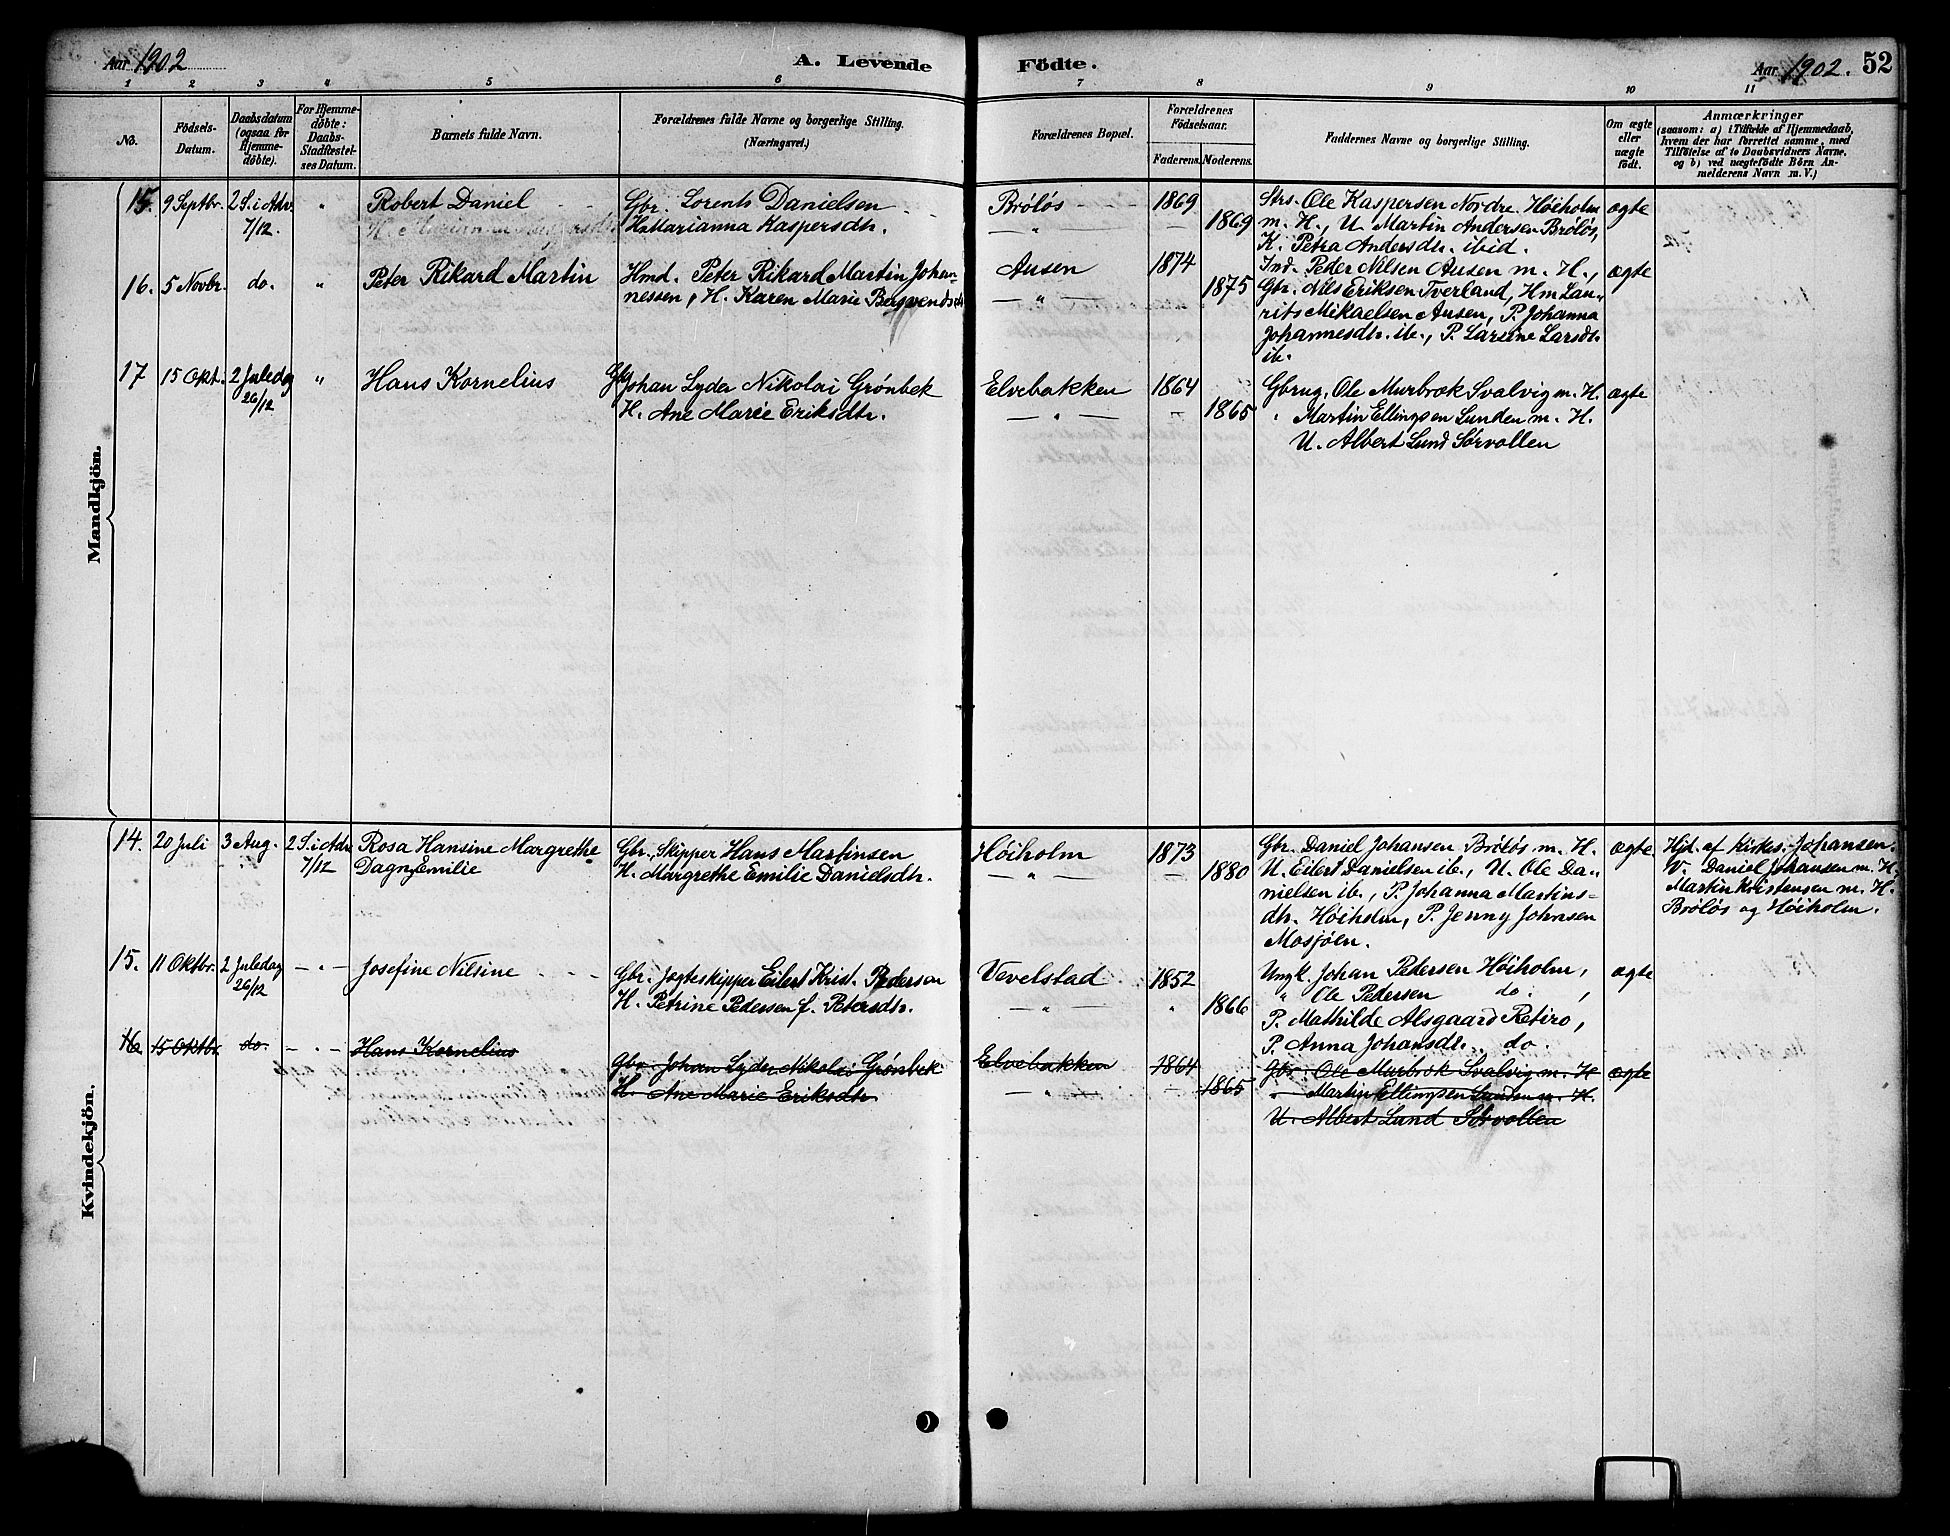 Aar 1902
A. Levende
Födte.
Aar 1902.
52
1 2 3 4 5 6 7 8 9 10 11
No.
Födsels-
Datum.
Daabsdatum
(ogsaa for
Hjemme-
döbte).
For Hjemme-
döbte:
Daabs-
Stadfæstel-
ses Datum.
Barnets fulde Navn.
Forældrenes fulde Navne og borgerlige Stilling.
(Næringsvei.)
Forældrenes Bopæl.
Forældrenes
Födselsaar.
Faderens.
Moderens.
Faddernes Navne og borgerlige Stilling.
Om ægte
eller
uægte
födt.
Anmærkninger
(saasom: a) i Tilfælde af Hjemmedaab,
hvem der har forrettet samme, med
Tilföielse af to Daabsvidners Navne,
og b) ved uægtefödte Börn An-
melderens Navn m. V.)
Mandkjön.
15. 9 Septbr. 2 S. i Adv. " Robert Daniel Gbr. Lorents Danielsen Brøløs 1869 Strs. Ole Kaspersen Nordre Høiholm ægte
7/12. H. Marianna Kaspersdtr. — " — 1869 m. H., U. Martin Andersen Brøløs,
K. Petra Andersdtr. ibid.
16. 5 Novbr. do. " Peter Rikard Martin Hmd. Peter Rikard Martin Johan- Ausen 1874 Ind. Peder Nilsen Ausen m. H., ægte
nessen, H. Karen Marie Bergvendsdtr. — " — 1875 Gbr. Nils Eriksen Tverland, Hm Lau-
rits Mikaelsen Ausen, P. Johanna
Johannesdtr. ib., P. Larsine Larsdtr.
ib.
17 15 Okt. 2 Juledag " Hans Kornelius Gbr Johan Lyder Nikolai Grønbek Elvebakken 1864 Gbrug. Ole Murbræk Svalvig m. H. ægte
26/12 H. Ane Marie Eriksdtr. — " — 1865 " Martin Ellingsen Lunden m. H.
U. Albert Lund Sørvollen
Kvindekjön.
14. 20 Juli 3 Aug. 2 S. i Adv. Rosa Hansine Margrethe Gbr., Skipper Hans Martinsen Høiholm 1873 Gbr. Daniel Johansen Brøløs m. H. ægte Hjd. af Kirkes. Johansen.
7/12 Dagny Emilie H. Margrethe Emilie Danielsdtr. — " — 1880 U. Eilert Danielsen ib., U. Ole Da- V. Daniel Johansen m. H.
nielsen ib., P. Johanna Martins- Martin Kristensen m. H.
dtr. Høiholm, P. Jenny Johnsen Brøløs og Høiholm.
Mosjøen.
15. 11 Oktbr. 2 Juledag — " — Josefine Nilsine Gbr. Jægteskipper Eilert Krist. Pedersen Vevelstad 1852 Ungk. Johan Petersen Høiholm, ægte
26/12 H. Petrine Pedersen f. Petersdtr. — " — 1866 " Ole Pedersen do. ,
P. Mathilde Alsgaard Retiro,
P. Anna Johansdtr. do.
16. 15 Oktbr. do. — " — Hans Kornelius Gbr. Johan Lyder Nikolai Grønbek Elvebakken 1864 Gbr. Ole Murbræk Svalvig m. H ægte
H. Ane Marie Eriksdtr — " — 1865 " Martin Ellingsen Lunden m. H.
U. Albert Lund Sørvollen